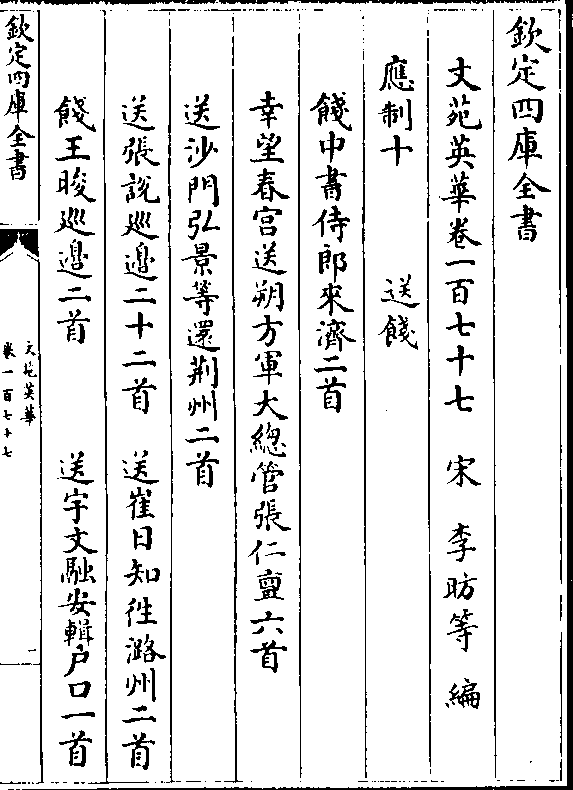 欽定四庫全書
文苑英華卷一百七十七　宋　李昉等　編
應制十　　送餞
餞中書侍郎來濟二首
幸望春宮送朔方軍大總管張仁亶六首
送沙門弘景等還荆州二首
送張說巡邉二十二首　送崔日知往潞州二首
餞王晙巡邉二首　　送宇文融安輯户口一首
欽定四庫全書
文苑英華
卷一百七十七
一